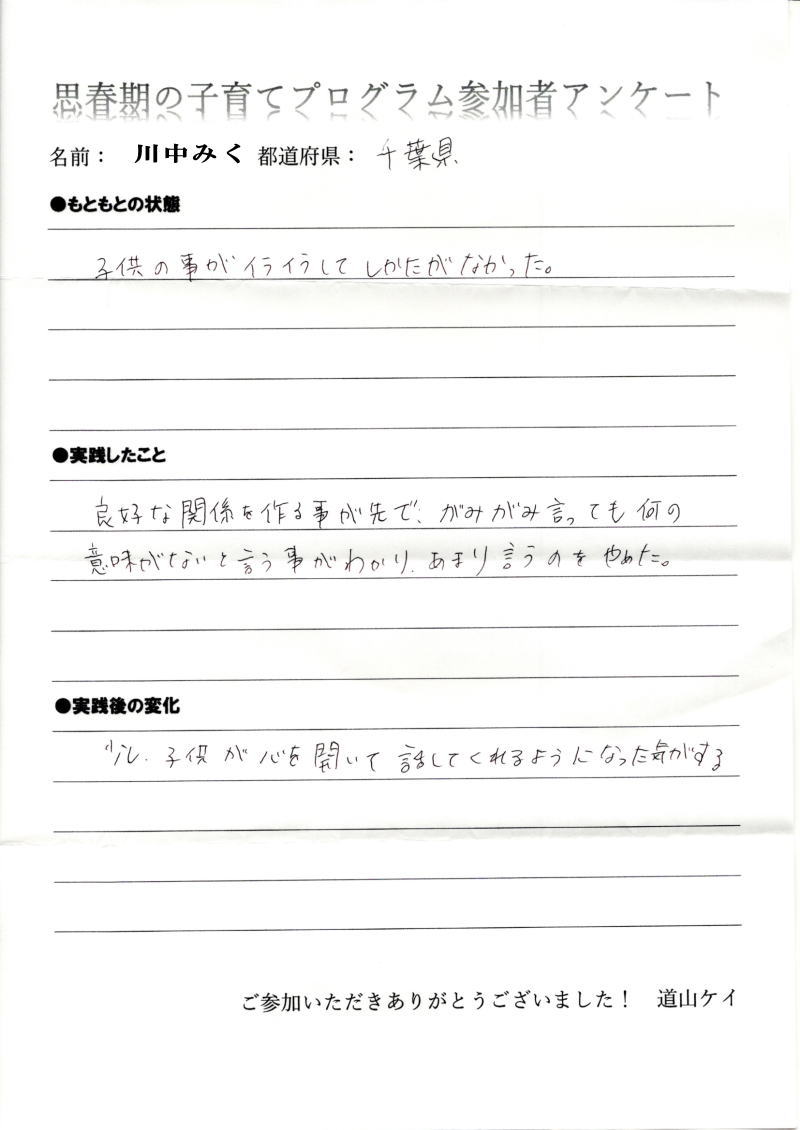 思春期の子育てプログラム参加者アンケート
名前： 川中みく 都道府県： 千葉県
●もともとの状態
子供の事がイライラしてしかたがなかった。
●実践したこと
良好な関係を作る事が先で、がみがみ言っても何の
意味がないと言う事がわかり、あまり言うのをやめた。
●実践後の変化
少し、子供が心を開いて話してくれるようになった気がする
ご参加いただきありがとうございました！ 道山ケイ